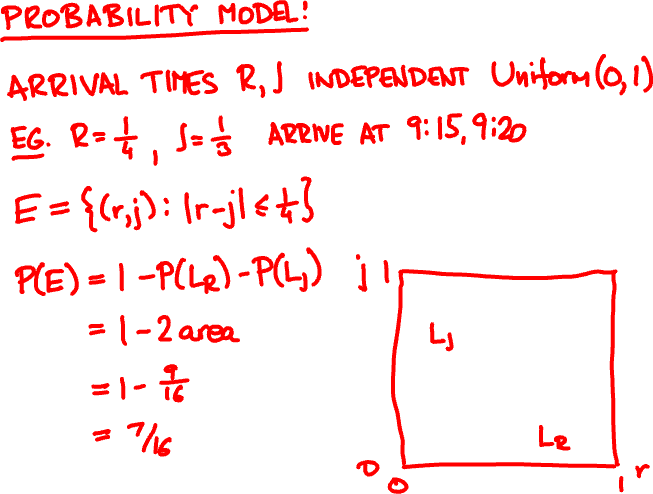 PROBABILITY MODEL!
ARRIVAL TIMES R, J INDEPENDENT Uniform(0,1)
EG. R=1/4, J=1/3 ARRIVE AT 9:15, 9:20
E = {(r,j): |r-j| ≤ 1/4}
P(E) = 1 - P(L_R) - P(L_J)
= 1 - 2 area
= 1 - 9/16
= 7/16
j 1
L_J
L_R
0
0 1 r